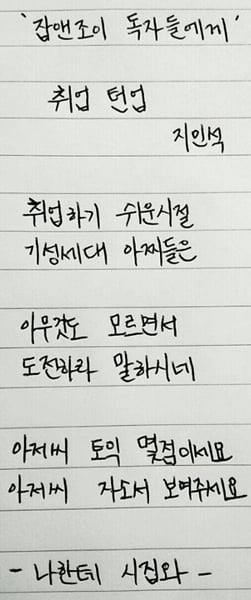 '잡앤조이 독자들에게'
취업 턴업
지인석
취업하기 쉬운시절
기성세대 아찌들은
아무것도 모르면서
도전하라 말하시네
아저씨 토익 몇점이세요
아저씨 자소서 보여주세요
- 나한테 시집와 -